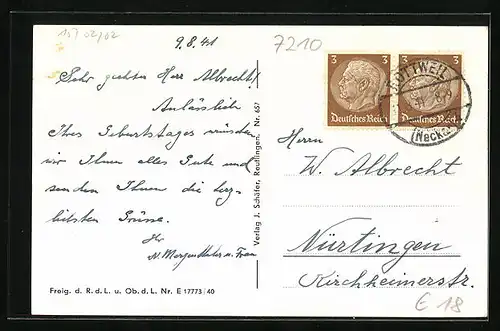 157 02/02
9.8.41
7210
Sehr geehrter Herr Albrecht!
Anlässlich
Ihres Geburtstages wünschen
wir Ihnen alles Gute und
senden Ihnen die herz-
lichsten Grüsse.
Ihr
u. Frau
Freig. d. R. d. L. u. Ob. d. L. Nr. E 17773/40
Verlag J. Schäfer, Reutlingen. Nr. 657
3 3
Deutsches Reich
3 3
Deutsches Reich
ROTTWEIL
(Neckar)
Herrn
W. Albrecht
Nürtingen
Kirchheimerstr.
E 18